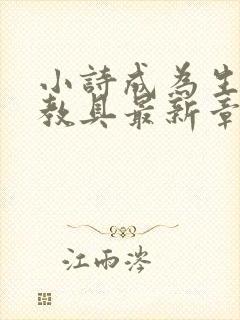 小詩成為生
教具最新章
江雨涔